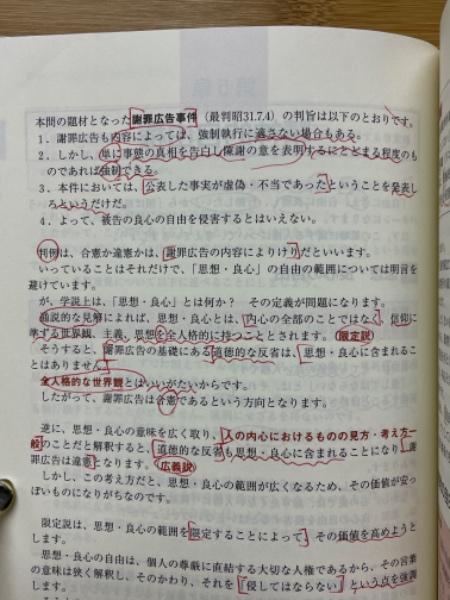 本問の題材となった謝罪広告事件（最判昭31.7.4）の判旨は以下のとおりです。
1．謝罪広告も内容によっては、強制執行に適さない場合もある。
2．しかし、単に事態の真相を告白し陳謝の意を表明するにとどまる程度のも
のであれば強制できる。
3．本件においては、公表した事実が虚偽・不当であったということを発表し
ろというだけだ。
4．よって、被告の良心の自由を侵害するとはいえない。
判例は、合憲か違憲かは、謝罪広告の内容によりけりだといいます。
いっていることはそれだけで、「思想・良心」の自由の範囲については明言を
避けています。
が、学説上は、「思想・良心」とは何か？　その定義が問題になります。
通説的な見解によれば、思想・良心とは、内心の全部のことではなく、信仰に
準ずる世界観、主義、思想を全人格的に持つこととされます。（限定説）
そうすると、謝罪広告の基礎にある道徳的な反省は、「思想・良心に含まれるこ
とはありません」
全人格的な世界観とはいいがたいからです。
したがって、謝罪広告は合憲であるという方向となります。
逆に、思想・良心の意味を広く取り、人の内心におけるものの見方・考え方一
般のことだと解釈すると、道徳的な反省も思想・良心に含まれることになり、謝
罪広告は違憲となります。（広義説）
しかし、この考え方だと、思想・良心の範囲が広くなるため、その価値が安っ
ぽいものになりがちなのです。
限定説は、思想・良心の範囲を限定することによって、その価値を高めようと
します。
思想・良心の自由は、個人の尊厳に直結する大切な人権であるから、その言葉
の意味は狭く解釈し、そのかわり、それを「侵してはならない」という点を強調
します。